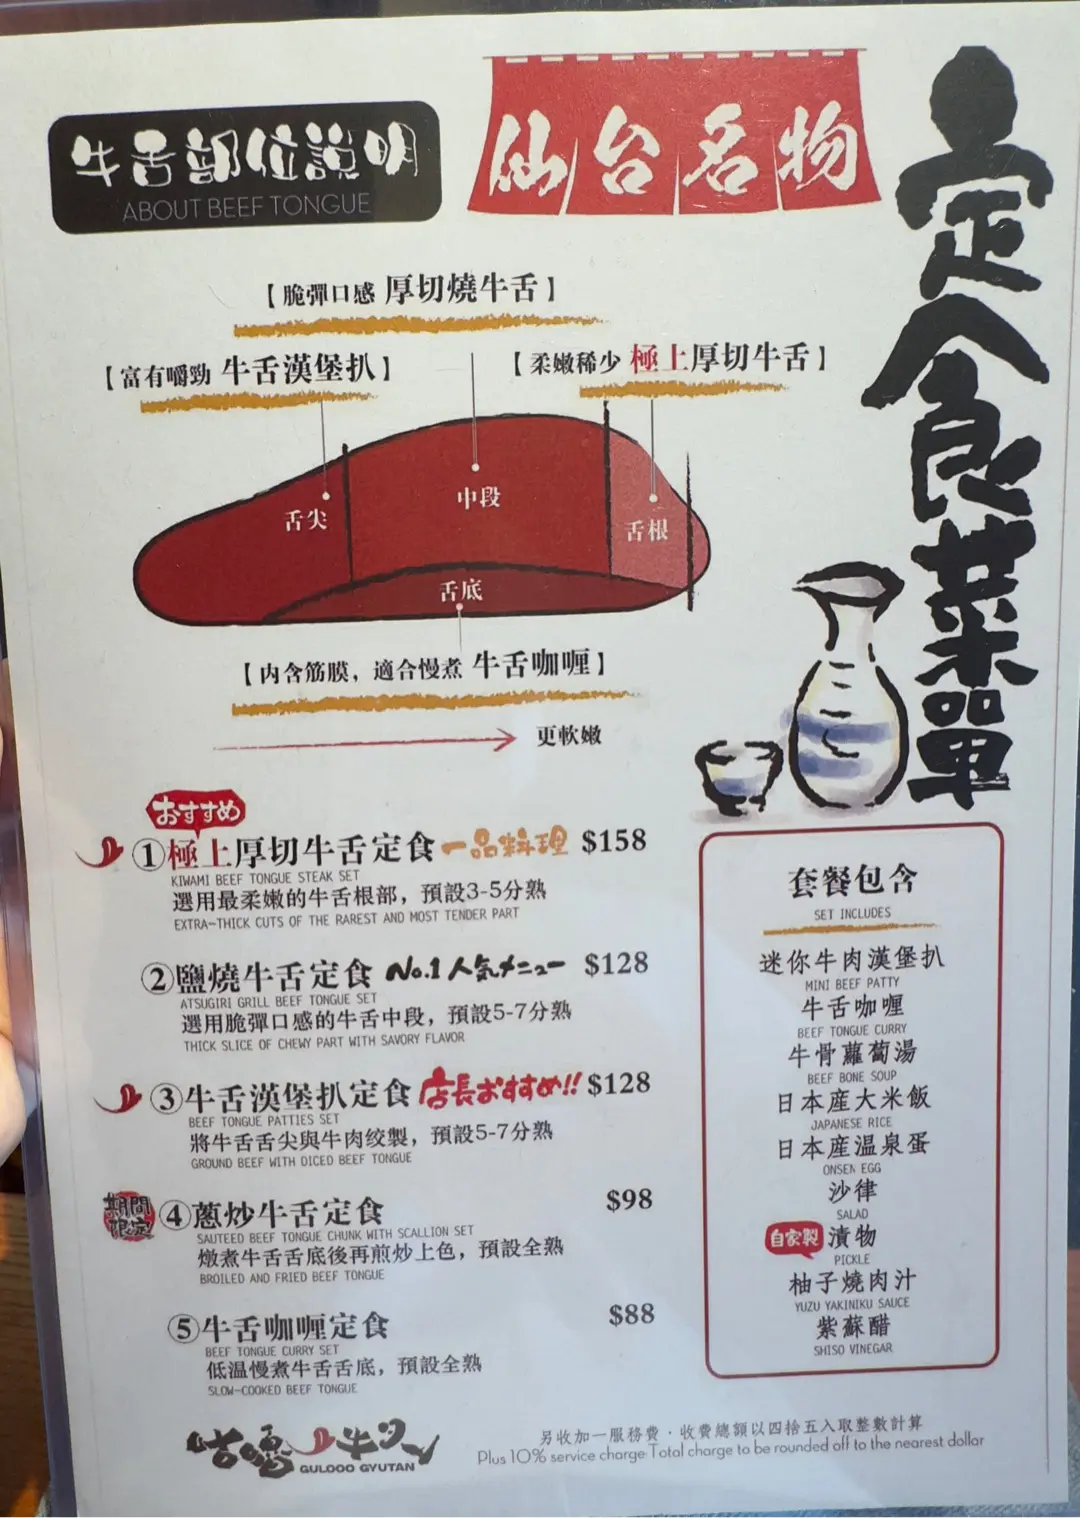 牛舌部位說明
ABOUT BEEF TONGUE
仙台名物
定食菜單
【脆彈口感 厚切燒牛舌】
【富有嚼勁 牛舌漢堡扒】
【柔嫩稀少 極上厚切牛舌】
中段
舌尖
舌根
舌底
【內含筋膜，適合慢煮 牛舌咖喱】
更軟嫩
おすすめ
①極上厚切牛舌定食 一品料理 $158
KIWAMI BEEF TONGUE STEAK SET
選用最柔嫩的牛舌根部，預設3-5分熟
EXTRA-THICK CUTS OF THE RAREST AND MOST TENDER PART
②鹽燒牛舌定食 No.1人気メニュー $128
ATSUGIRI GRILL BEEF TONGUE SET
選用脆彈口感的牛舌中段，預設5-7分熟
THICK SLICE OF CHEWY PART WITH SAVORY FLAVOR
③牛舌漢堡扒定食 店長おすすめ!! $128
BEEF TONGUE PATTIES SET
將牛舌舌尖與牛肉绞製，預設5-7分熟
GROUND BEEF WITH DICED BEEF TONGUE
期間
限定
④蔥炒牛舌定食 $98
SAUTEED BEEF TONGUE CHUNK WITH SCALLION SET
燉煮牛舌舌底後再煎炒上色，預設全熟
BROILED AND FRIED BEEF TONGUE
⑤牛舌咖喱定食 $88
BEEF TONGUE CURRY SET
低温慢煮牛舌舌底，預設全熟
SLOW-COOKED BEEF TONGUE
套餐包含
SET INCLUDES
迷你牛肉漢堡扒
MINI BEEF PATTY
牛舌咖喱
BEEF TONGUE CURRY
牛骨蘿蔔湯
BEEF BONE SOUP
日本産大米飯
JAPANESE RICE
日本産温泉蛋
ONSEN EGG
沙律
SALAD
自家製 漬物
PICKLE
柚子燒肉汁
YUZU YAKINIKU SAUCE
紫蘇醋
SHISO VINEGAR
咕嚕牛タン
GULOOO GYUTAN
另收加一服務費·收費總額以四捨五入取整數計算
Plus 10% service charge Total charge to be rounded off to the nearest dollar